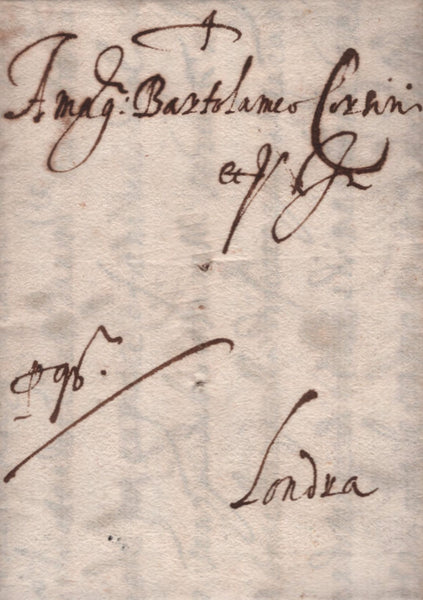 A mag.ci Bartolameo Corsini
et
Londra